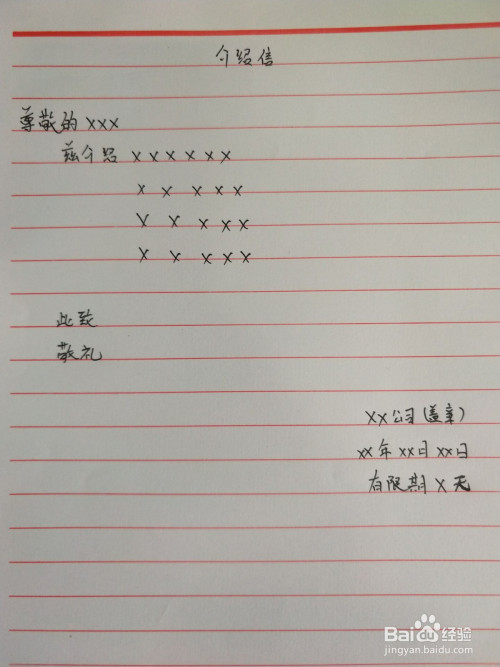 介绍信
尊敬的 xxx
兹介绍 x x x x x x
x x x x x
x x x x x
x x x x x
此致
敬礼
xx公司(盖章)
xx年xx日xx日
有限期x天
Baidu经验
jingyan.baidu.com